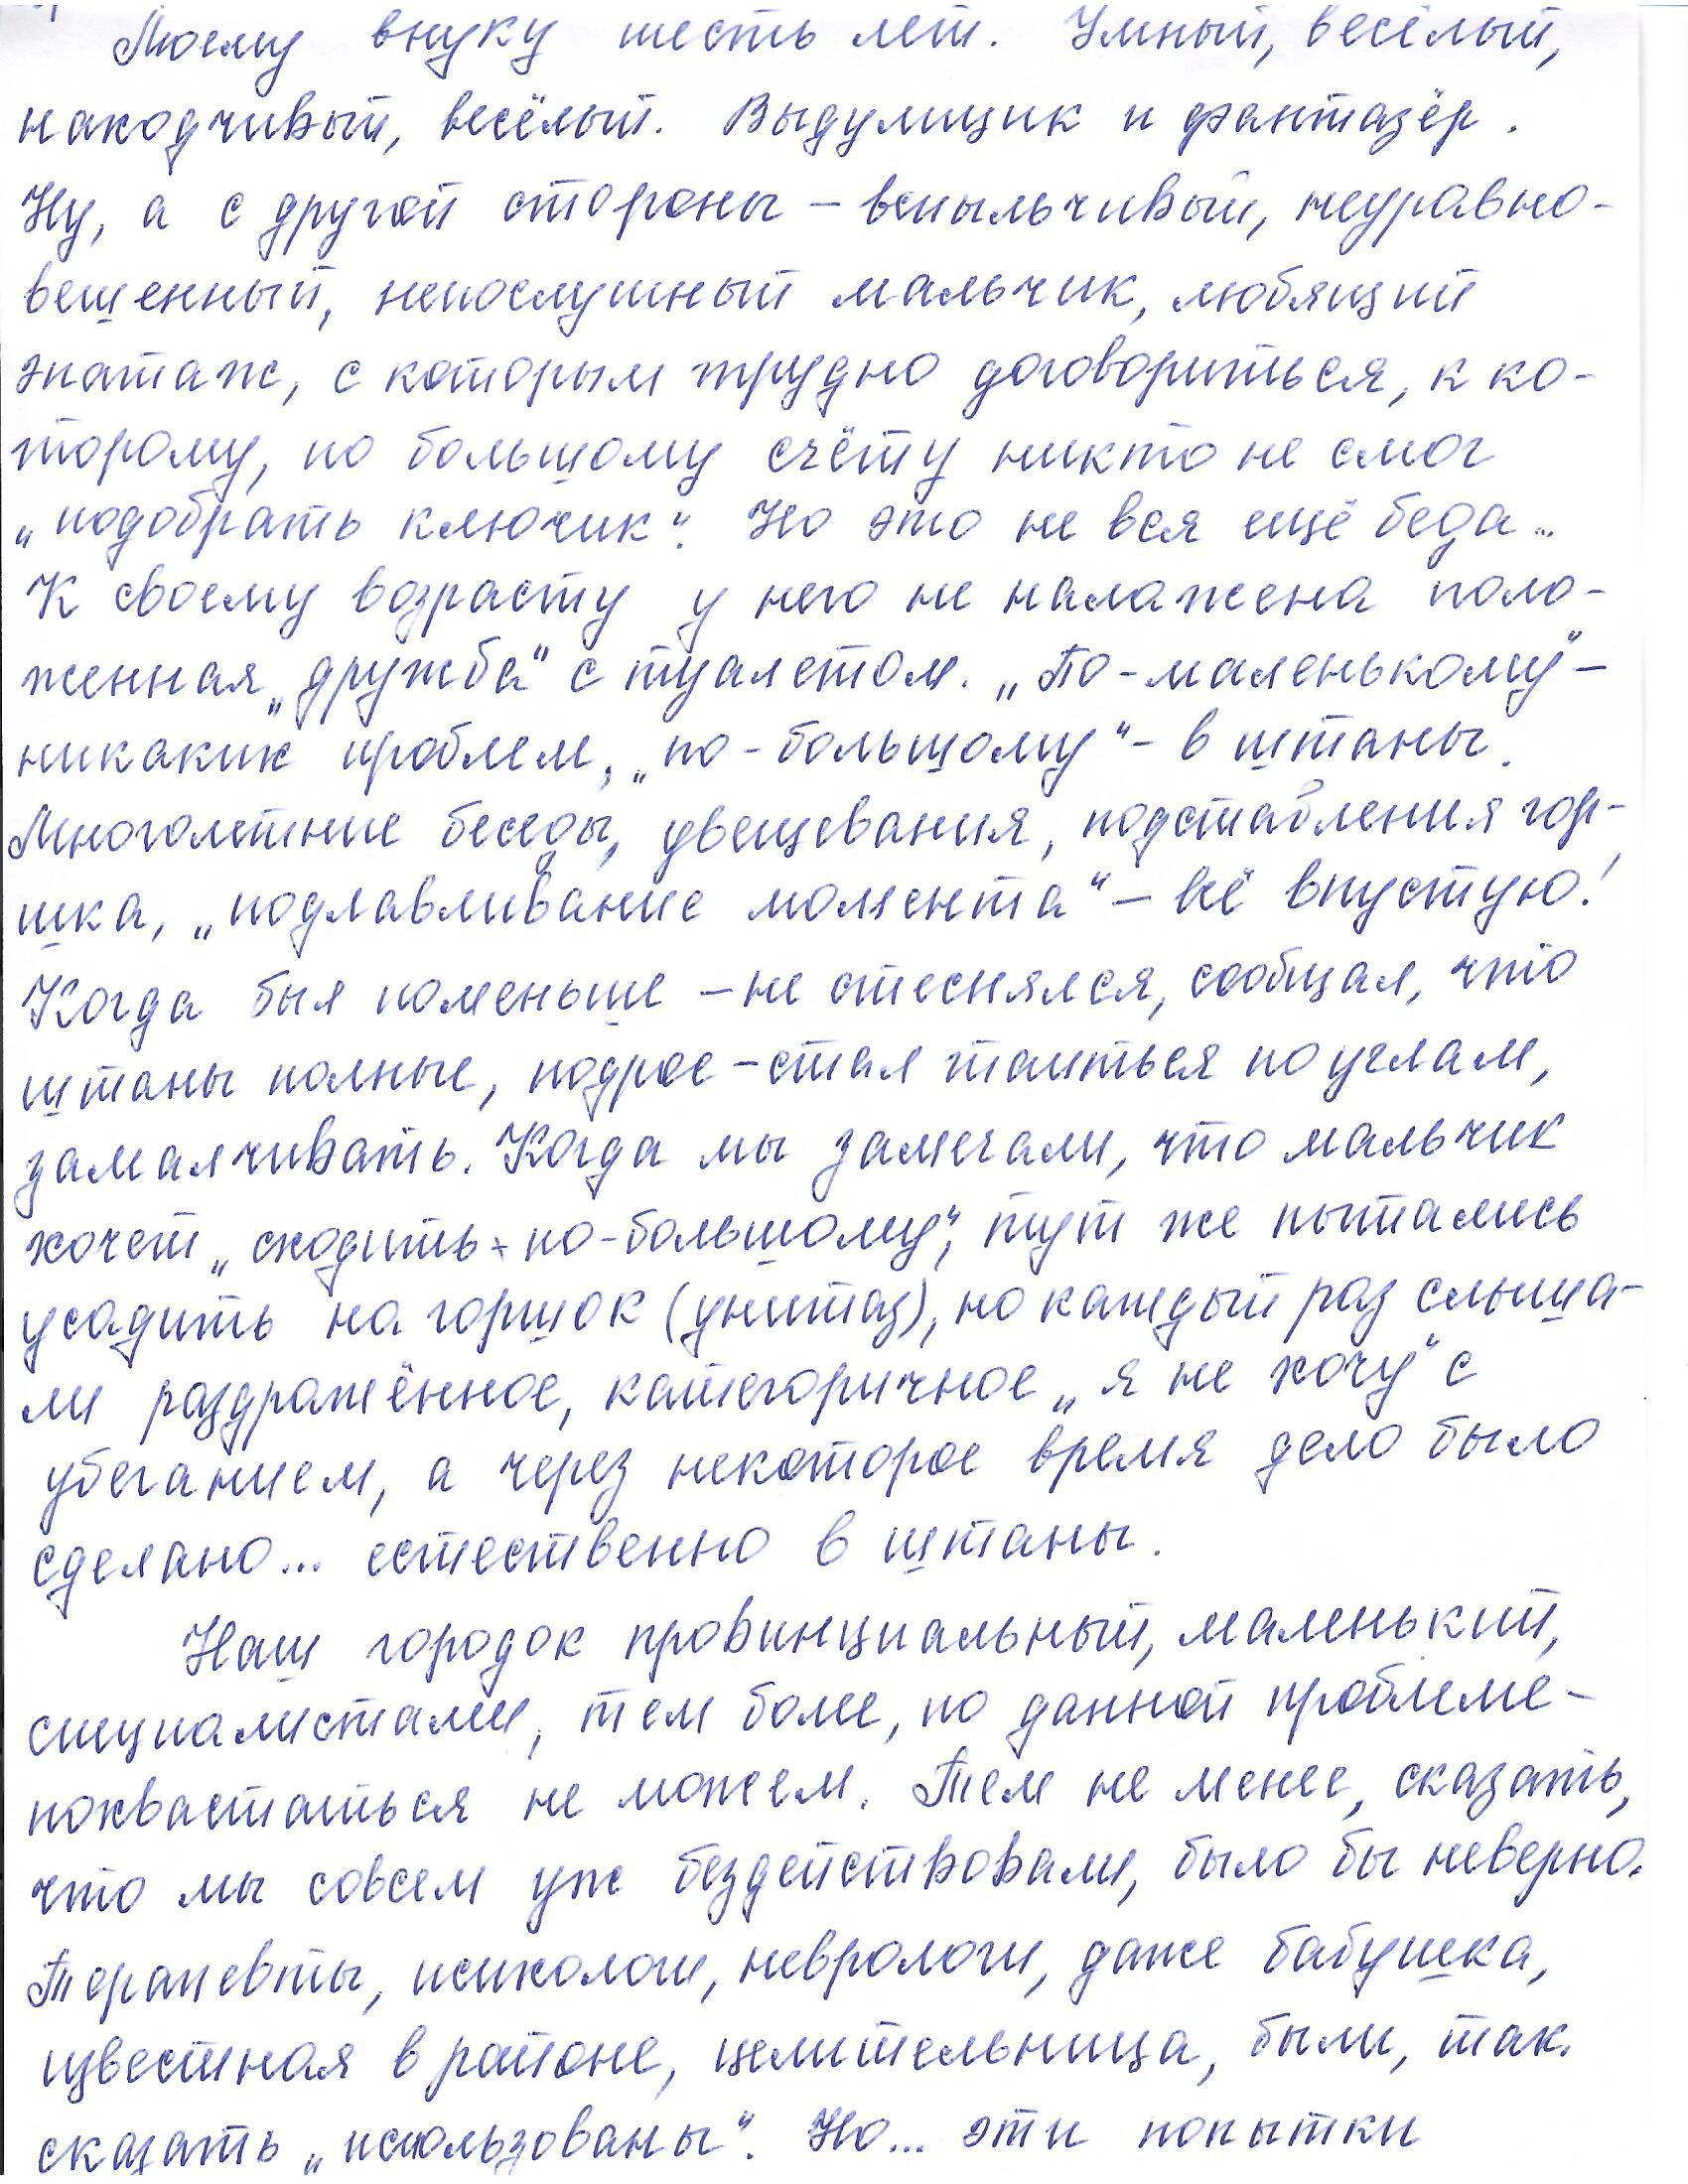 Моему внуку шесть лет. Умный, весёлый,
находчивый, весёлый. Выдумщик и фантазёр.
Ну, а с другой стороны – вспыльчивый, неуравно-
вешенный, непослушный мальчик, любящий
эпатаж, с которым трудно договориться, к ко-
торому, по большому счёту никто не смог
„подобрать ключик“. Но это не вся ещё беда...
К своему возрасту у него не налажена поло-
женная „дружба“ с туалетом. „По-маленькому“ –
никаких проблем, „по-большому“ – в штаны.
Многолетние беседы, увещевания, подставления гор-
шка, „подлавливание момента“ – всё впустую!
Когда был поменьше – не стеснялся, сообщал, что
штаны полные, подрос – стал таиться по углам,
замалчивать. Когда мы замечали, что мальчик
хочет „сходить по-большому“, тут же пытались
усадить на горшок (унитаз), но каждый раз слыша-
ли раздражённое, категоричное „я не хочу“ с
убеганием, а через некоторое время дело было
сделано... естественно в штаны.
Наш городок провинциальный, маленький,
специалистами, тем более, по данной проблеме –
похвастаться не можем. Тем не менее, сказать,
что мы совсем уж бездействовали, было бы неверно.
Терапевты, психологи, неврологи, даже бабушка,
известная в районе, целительница, были, так.
сказать „использованы“. Но... эти попытки